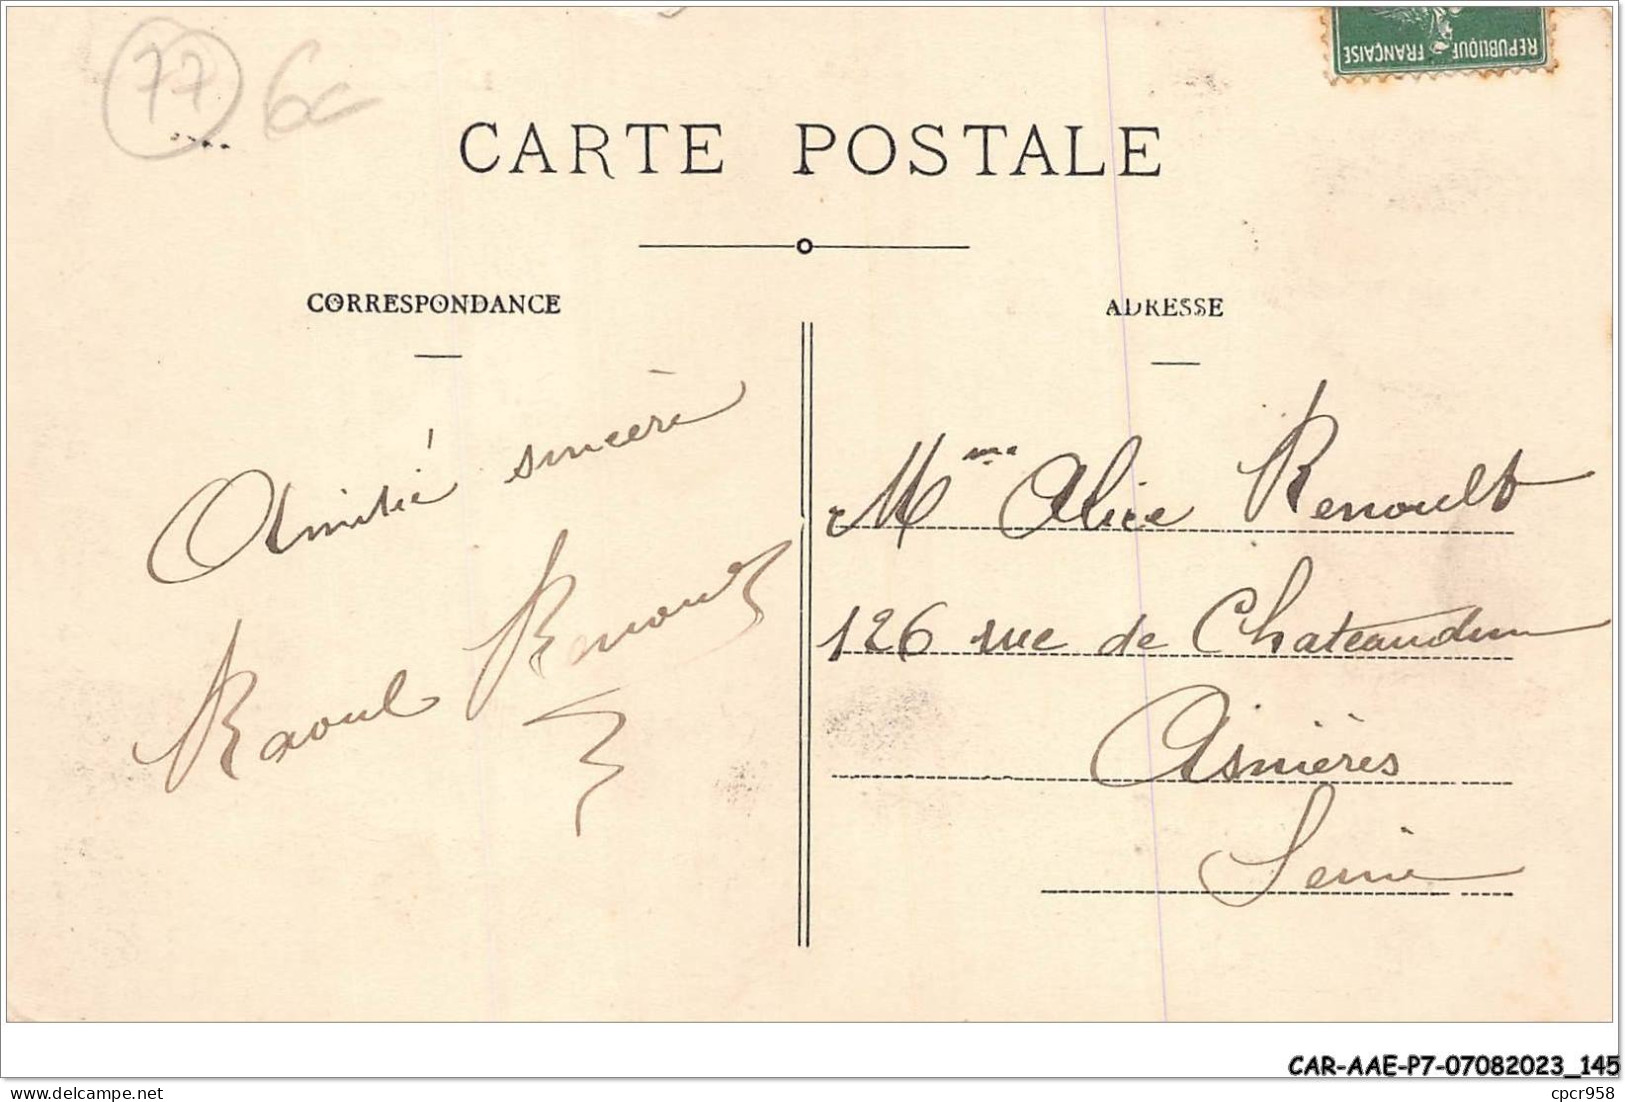 77 6c
REPUBLIQUE FRANÇAISE
CARTE POSTALE
CORRESPONDANCE
Amitié sincère
Raoul Renoult
ADRESSE
Mme Alice Renoult
126 rue de Chateaudun
Asnières
Seine
CAR-AAE-P7-07082023_145
www.delcampe.net
cpcr958